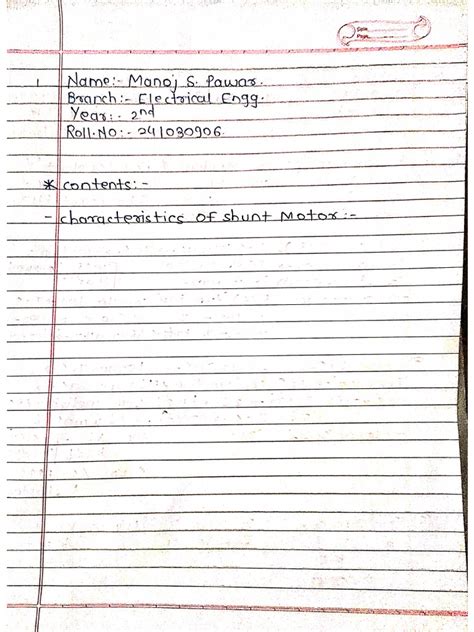 Date
Page
Name:- Manoj S. Pawar.
Branch:- Electrical Engg.
Year:- 2nd
Roll.No:- 241030906
* contents:-
- characteristics of shunt Motor:-